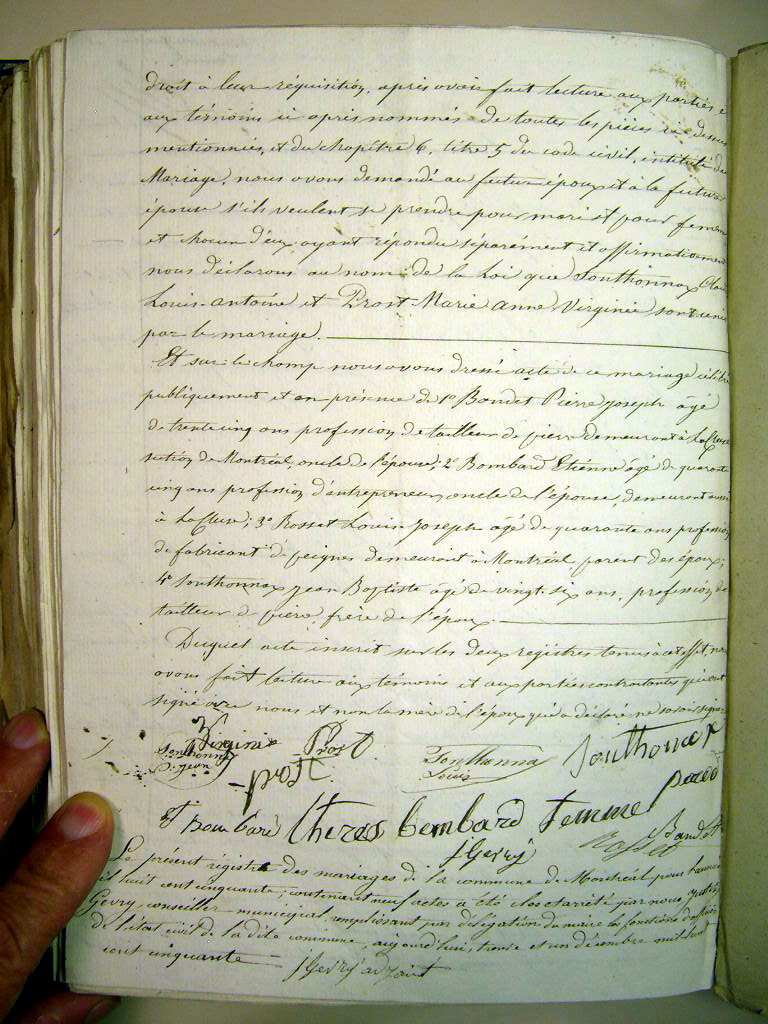 droit à leur réquisition, après avoir fait lecture aux parties e
aux témoins ci après nommés de toutes les pièces ci dessus
mentionnées, et du chapitre 6, titre 5 du code civil, intitulé du
Mariage, nous avons demandé au futur époux et à la future
épouse s'ils veulent se prendre pour mari et pour femme
et chacun d'eux ayant répondu séparément et affirmativement
nous déclarons au nom de la Loi que Southonnax
Louis-Antoine et Prost Marie Anne Virginie sont unis
par le mariage.
Et sur le champ nous avons dressé acte de ce mariage célébré
publiquement et en présence de 1° Baudet Pierre Joseph âgé
de trente cinq ans profession de tailleur de pierre demeurant à La Cluse
section de Montréal, oncle de l'épouse, 2° Bombard Etienne âgé de quarante
cinq ans profession d'entrepreneur, oncle de l'épouse, demeurant aussi
à La Cluse; 3° Rosset Louis-Joseph âgé de quarante ans profession
de fabricant de peignes demeurant à Montréal, parent des époux;
4° Southonnax Jean Baptiste âgé de vingt-six ans, profession de
tailleur de pierre, frère de l'époux.
Duquel acte inscrit sur les deux registres tenus à cet effet, nous
avons fait lecture aux témoins et aux parties contractantes qui ont
signé avec nous et non la mère de l'époux qui a déclaré ne savoir signer
Virginie Prost
Southonnax
Louis
prost
Et bombard theres bombard femme
Baudet
Rosset
J Gevry
Le présent registre des mariages de la commune de Montréal pour l'année
mil huit cent cinquante, contenant neuf actes a été clos et arrêté par nous
Gevry, conseiller municipal, remplissant par délégation du maire les fonctions d'officier
de l'état civil de la dite commune, aujourd'hui, trente et un décembre mil huit
cent cinquante
J Gevry adjoint